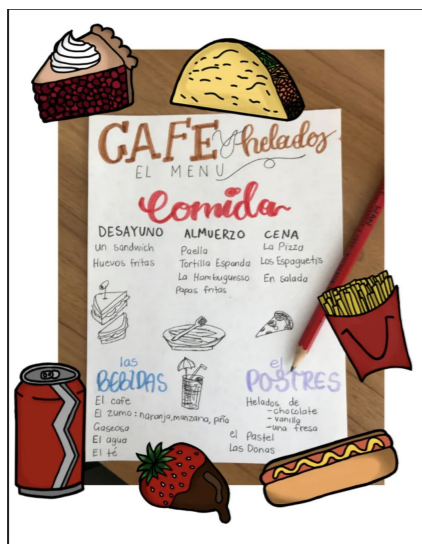 CAFE y helados
EL MENU
Comida
DESAYUNO
un sandwich
Huevos fritas
ALMUERZO
Paella
Tortilla Espanda
La Hambuguesso
Papas fritas
CENA
La Pizza
Los Espaguetis
En salada
las
BEBIDAS
El cafe
El zumo: naranja, manzana, piña
Gaseosa
El agua
El té
el
POSTRES
Helados de
-chocolate
-vanilla
-una fresa
el Pastel
Las Donas